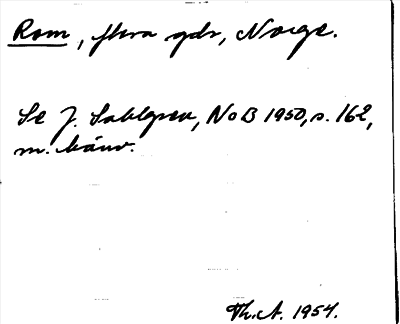 Rom, flera gdr, Norge.
Se J. Sahlgren, NoB 1950, s. 162,
m. hänv.
Th. A. 1954.